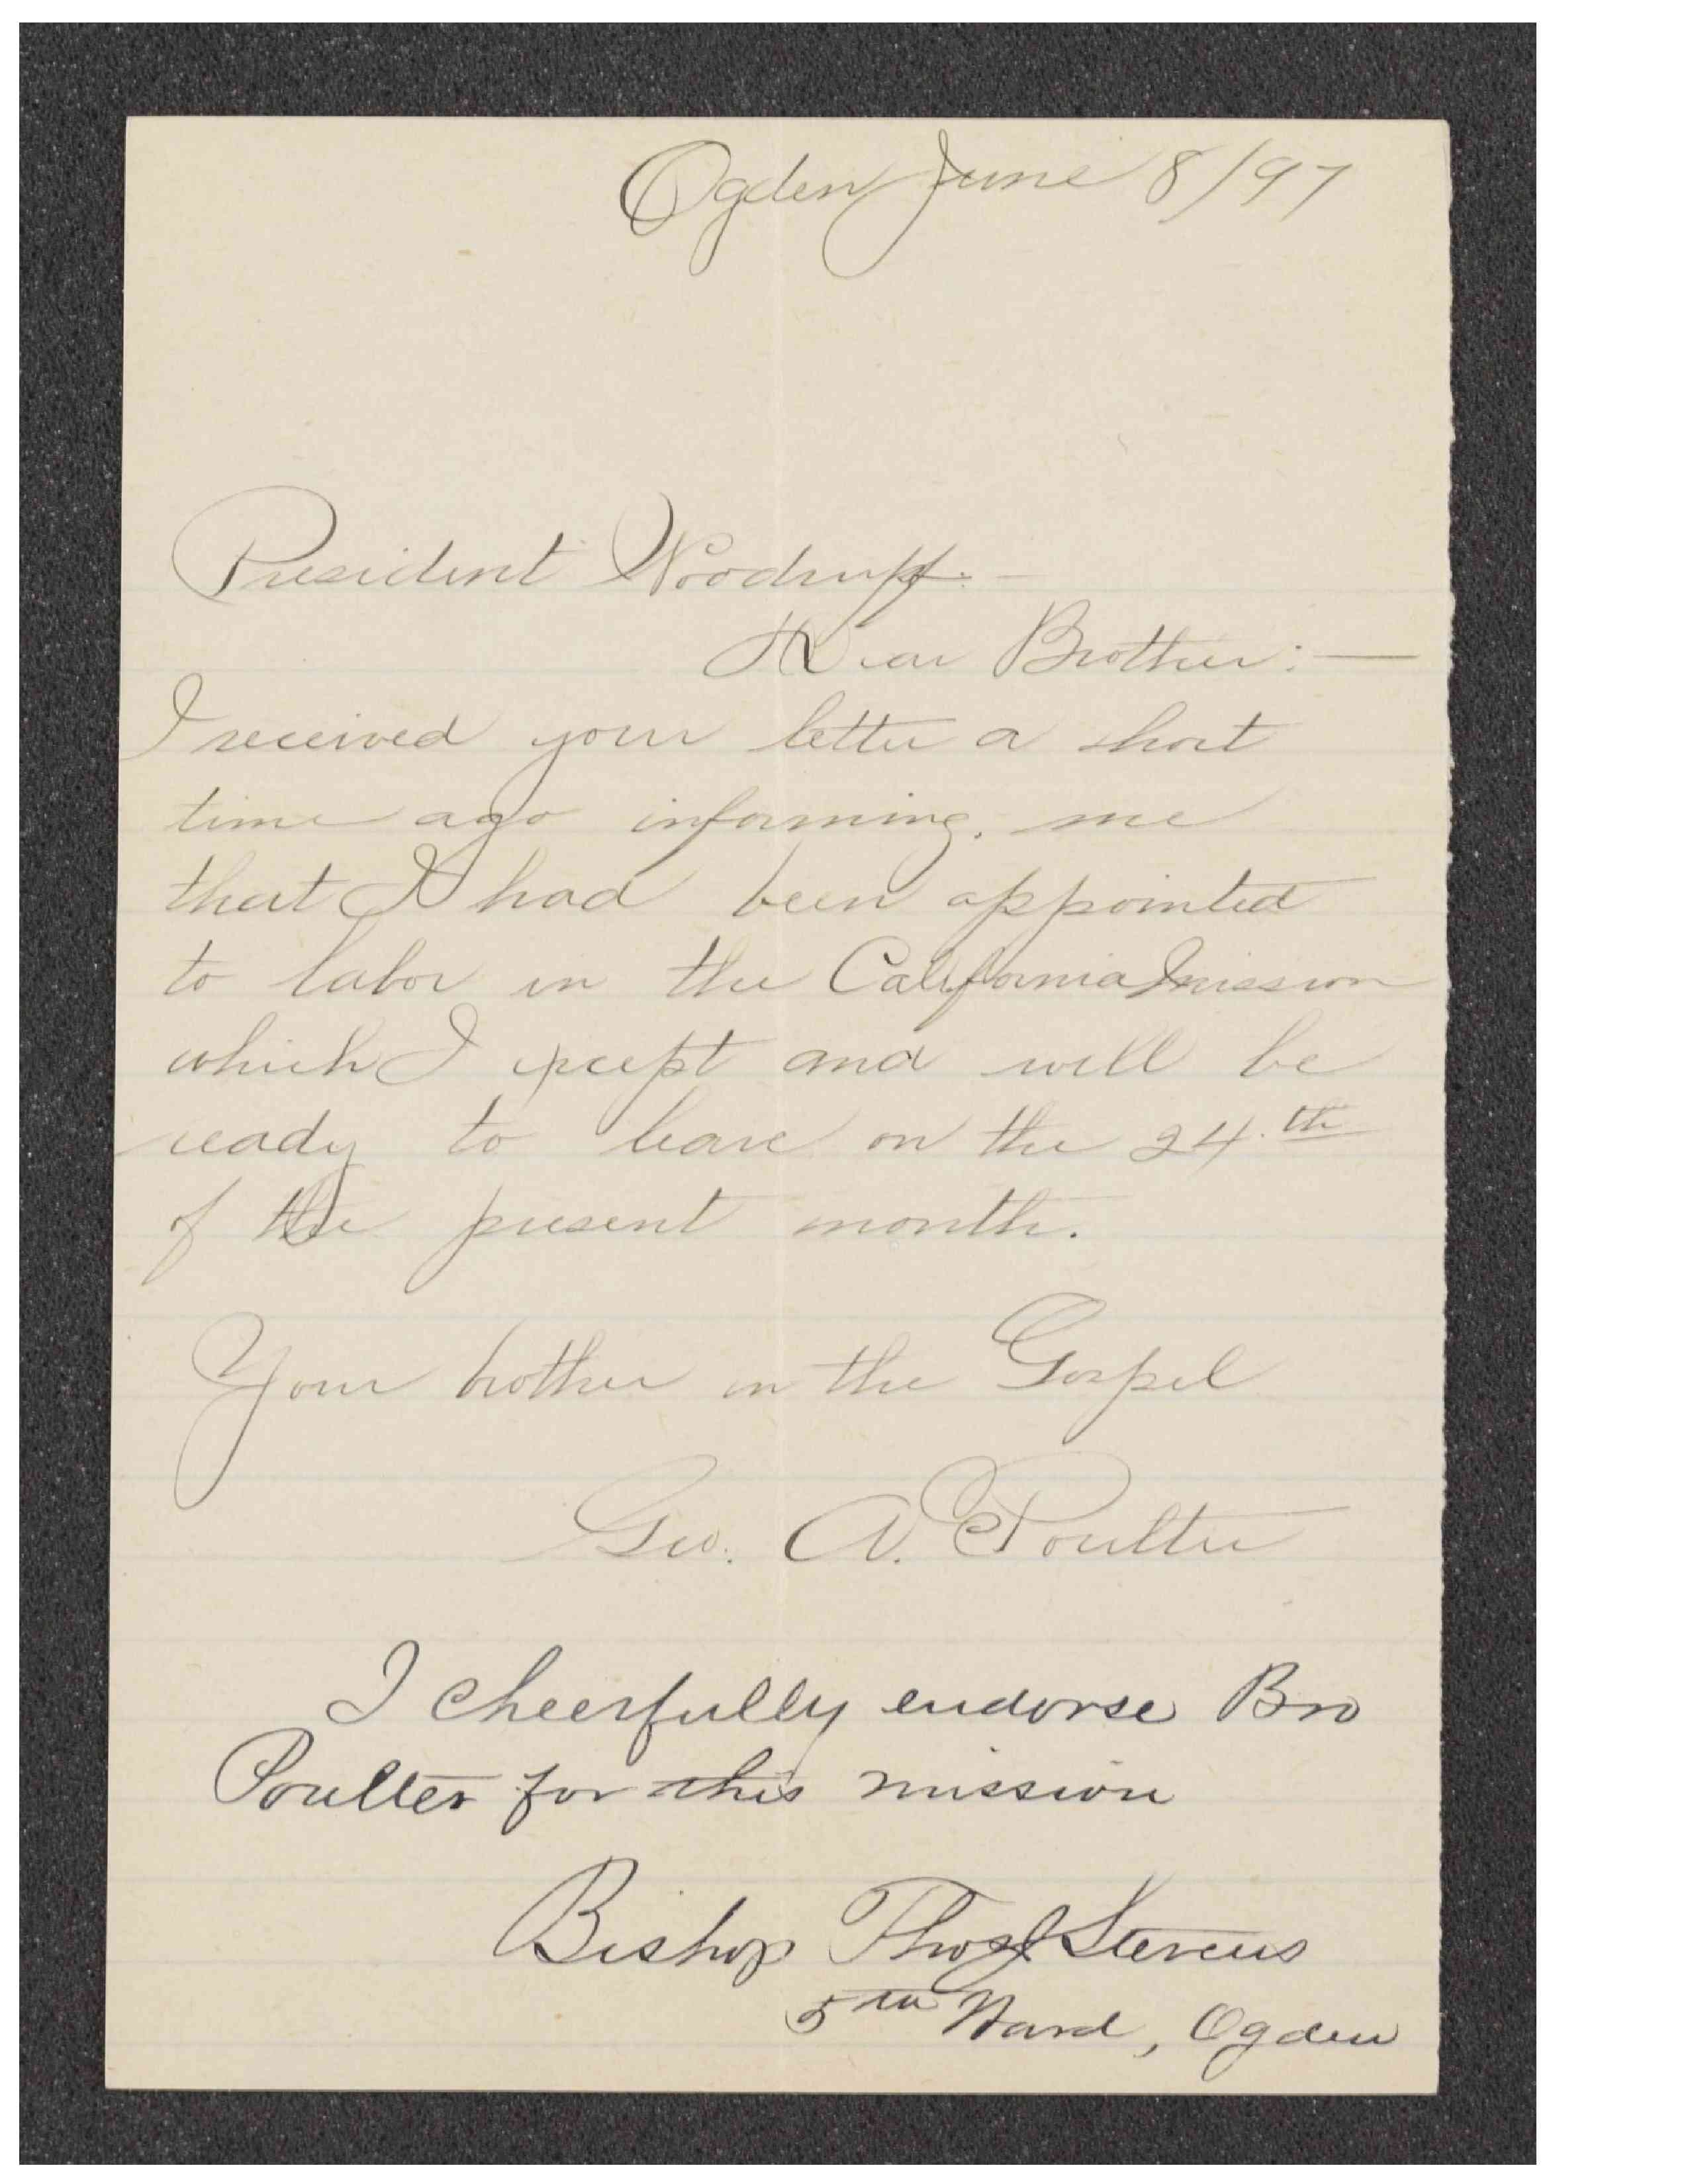 Ogden June 8/97
President Woodruff:-
Dear Brother:—
I received your letter a short
time ago informing me
that I had been appointed
to labor in the California mission
which I except and will be
ready to leave on the 24.th
of the present month.
Your brother in the Gospel
Geo. A. Poulter
I cheerfully endorse Bro
Poulter for this mission
Bishop Thos J Stevens
5th Ward, Ogden